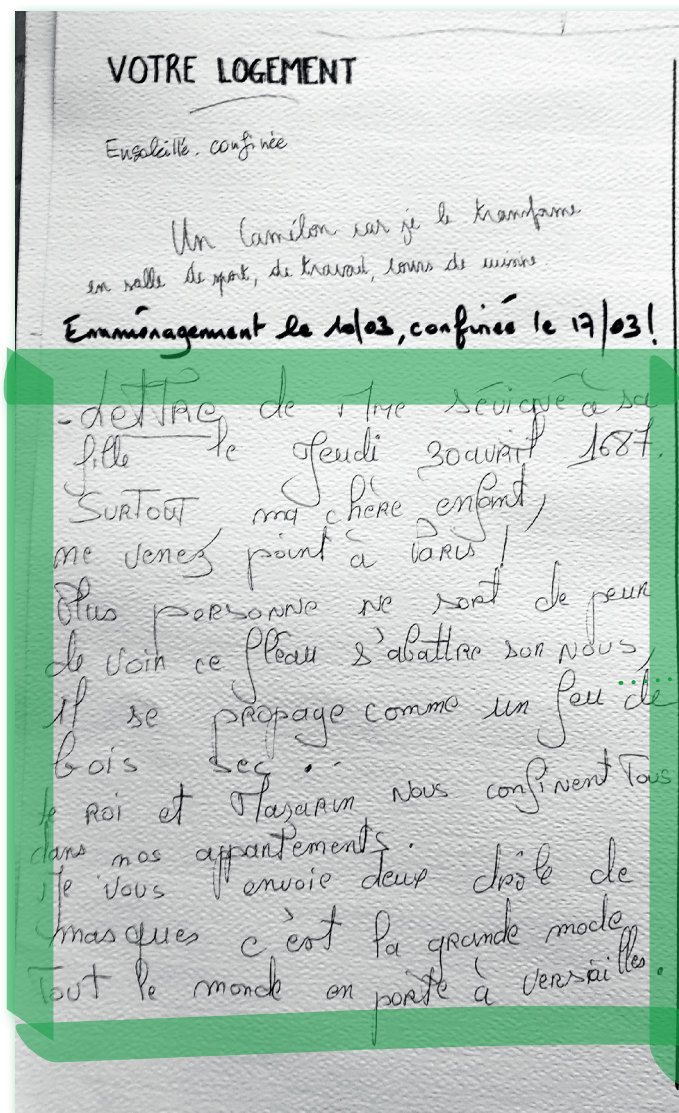 VOTRE LOGEMENT
Ensoleillé. confinée
Un Camélon car je le transforme
en salle de sport, de travail, cours de cuisine.
Emménagement le 10/03, confinée le 17/03!
- LeTTRe de Mme Sévigné à sa
fille le Jeudi 30 avril 1687.
SURTOUT, ma chère enfant,
ne venez point à PARIS!
Plus personne ne sort de peur
de voir ce fléau s'abattre sur nous,
il se propage comme un feu de
bois sec.
le ROI et Mazarin nous confinent Tous
dans nos appartements.
Je vous envoie deux drôle de
masques c'est la grande mode
Tout le monde en porte à Versailles.